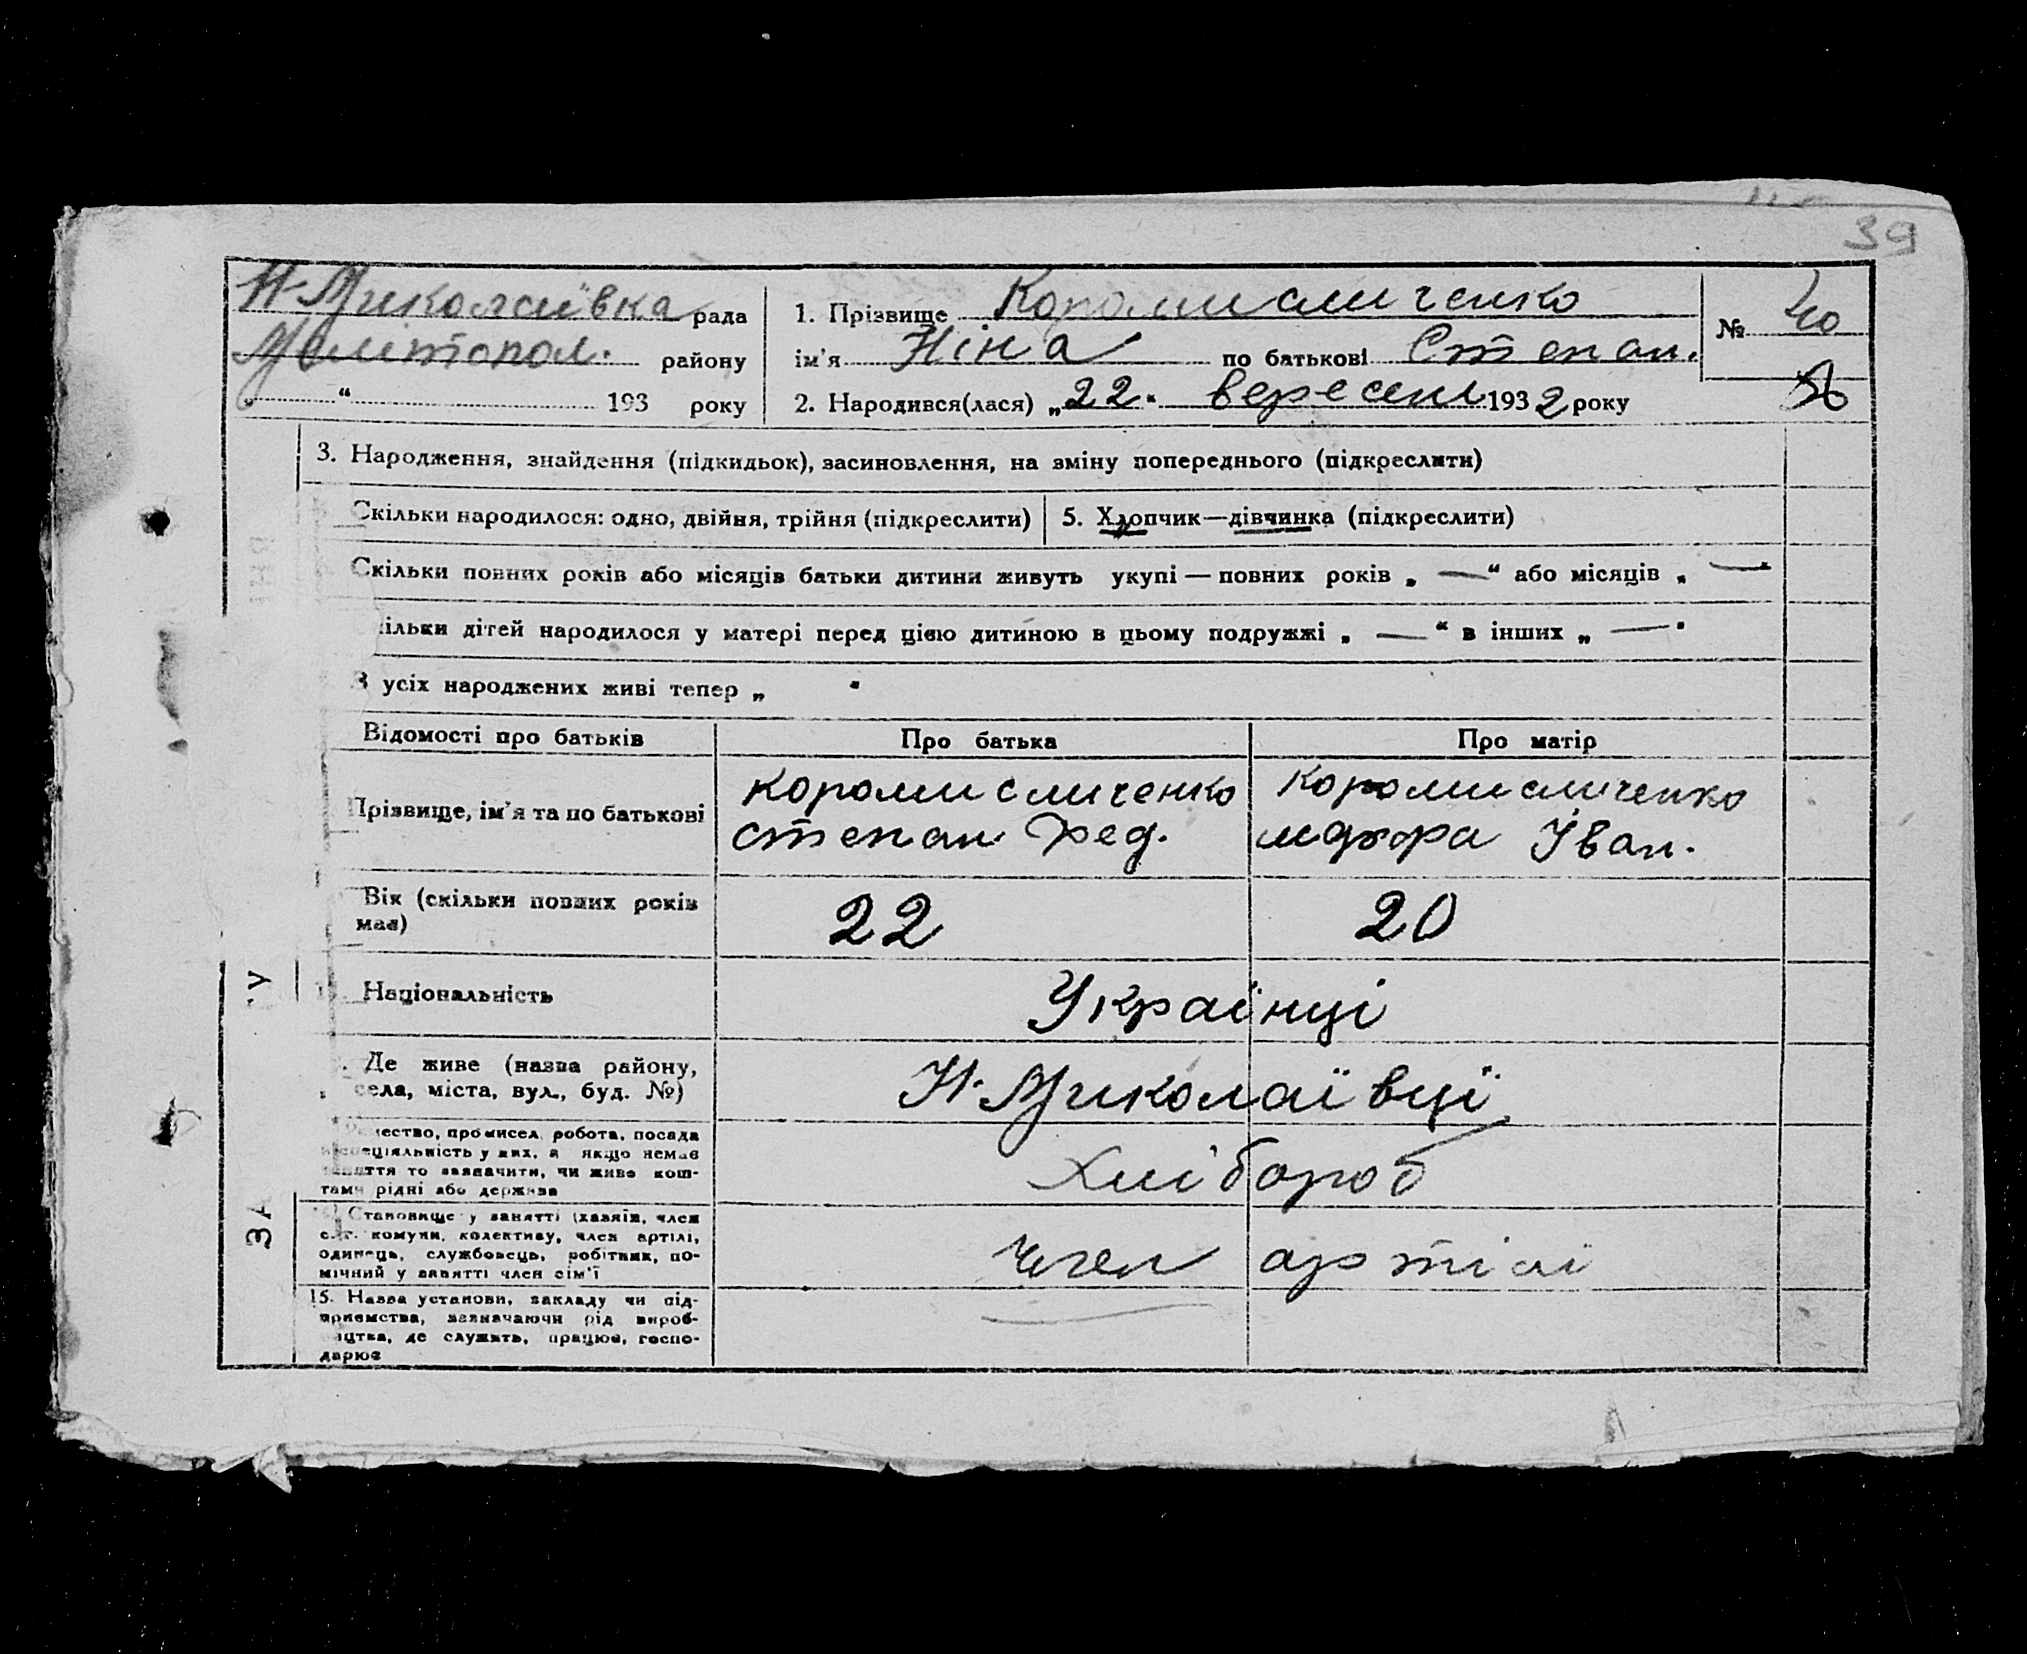 39
Н-Миколаївка рада
Мелітопол. району
„ “ 193 року
1. Прізвище Коромисличенко
ім’я Ніна по батькові Степан.
2. Народився(лася) „22“ вересень 1932 року
№ 40
3. Народження, знайдення (підкидьок), засиновлення, на зміну попереднього (підкреслити)
Скільки народилося: одно, двійня, трійня (підкреслити)
5. Хлопчик—дівчинка (підкреслити)
Скільки повних років або місяців батьки дитини живуть укупі — повних років „ — “ або місяців „ — “
ільки дітей народилося у матері перед цією дитиною в цьому подружжі „ — “ в інших „ — “
З усіх народжених живі тепер „ “
Відомості про батьків Про батька Про матір
Прізвище, ім’я та по батькові
Коромисличенко
Степан Фед.
Коромисличенко
Іван.
Вік (скільки повних років має)
22 20
Національність
Українці
Де живе (назва району,
села, міста, вул., буд. №)
Н-Миколаївці
чество, промисел, робота, посада
спеціяльність у них, а якщо немає
заняття то зазначити, чи живе кош-
тами рідні або держави
Хлібороб
Становище у занятті (хазяїн, член
с.-г. комуни, колективу, член артілі,
одинець, службовець, робітник, по-
мічний у занятті член сім’ї
Член артілі
15. Назва установи, закладу чи під-
приємства, зазначаючи рід вироб-
ництва, де служить, працює, госпо-
дарює
ЗА